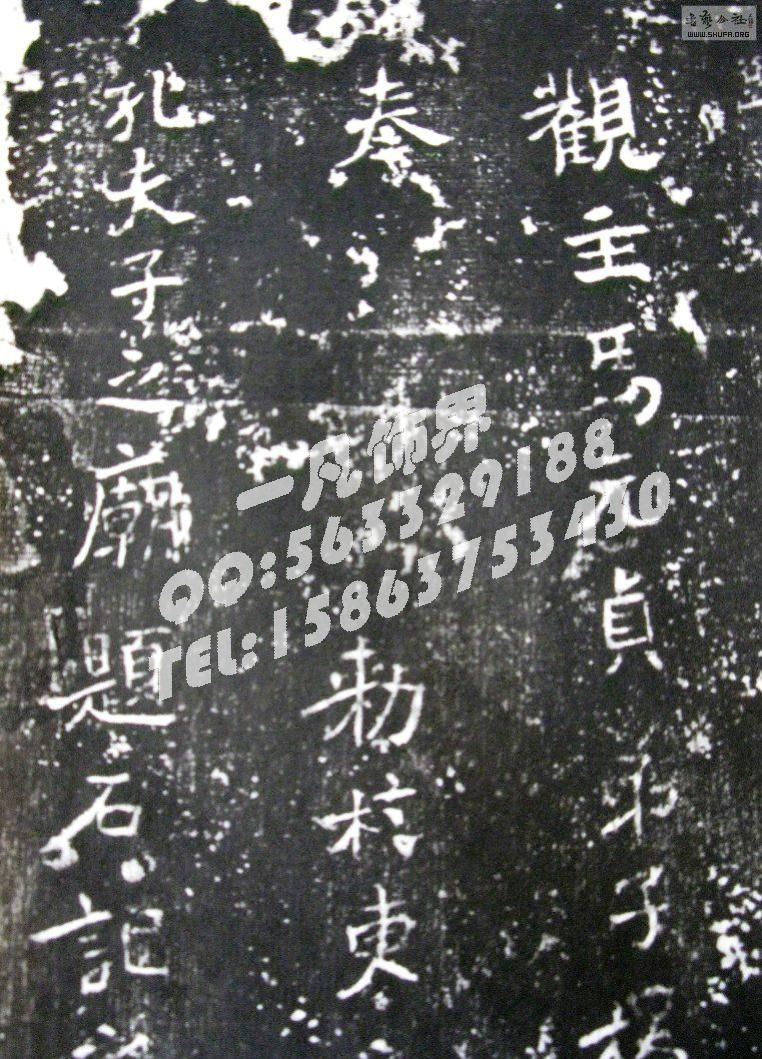 觀主馬元貞弟子楊
奏
勅於東
孔夫子之廟題石記
一凡饰界
QQ:563329188
TEL:15863753430
书艺公社
WWW.SHUFA.ORG